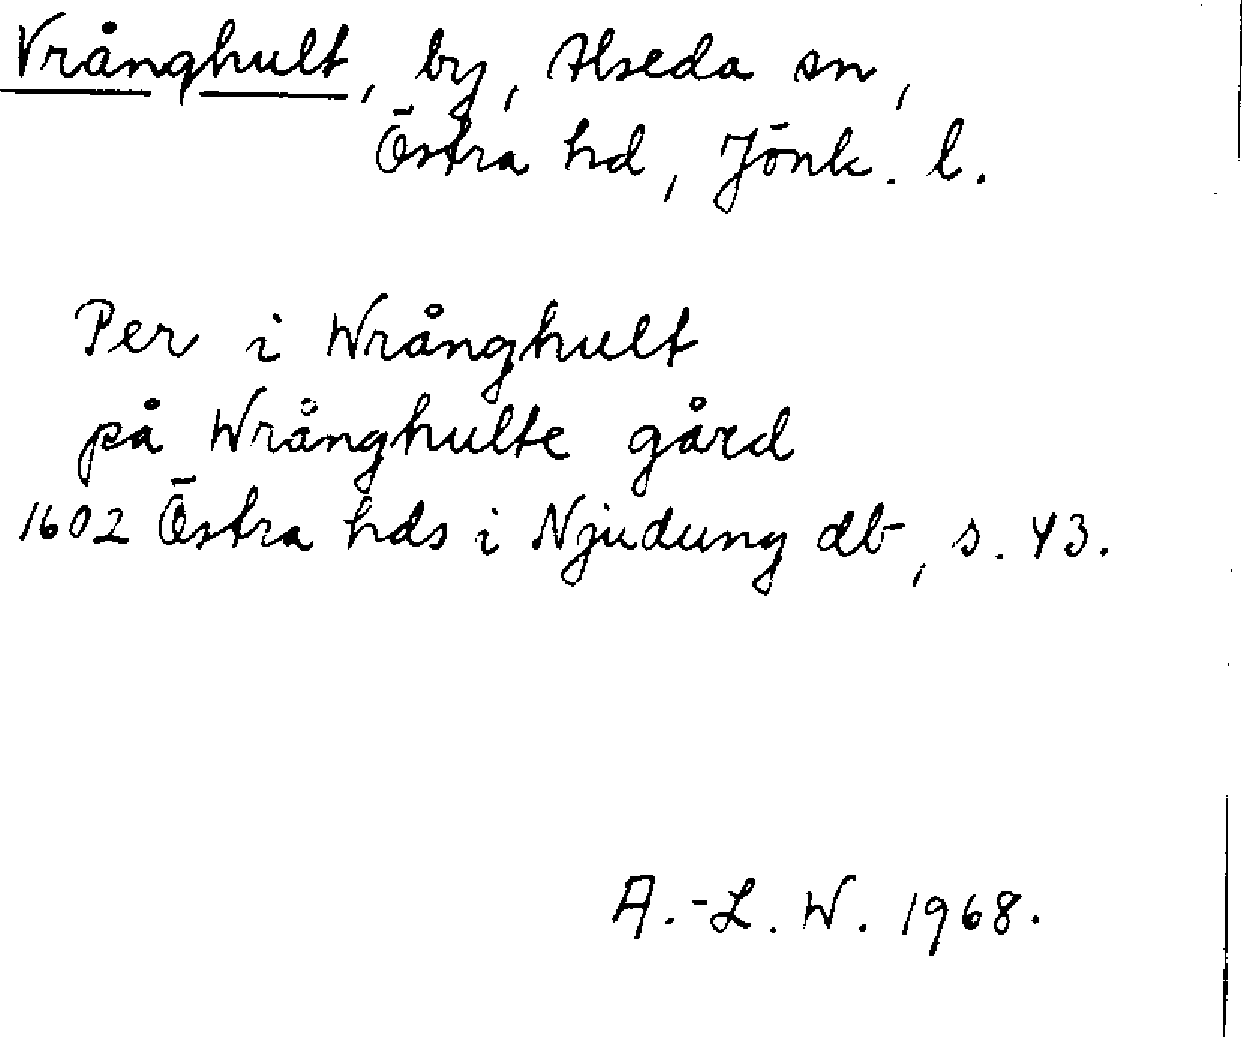 Vrånghult, by, Alseda sn,
Östra hd, Jönk. l.
Per i Wrånghult
på Wrånghulte gård
1602 Östra hds i Njudung db, s. 43.
A.-L. W. 1968.